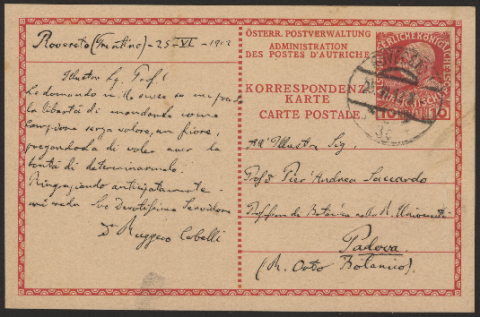 Rovereto (Trentino) - 25 - VI - 191
Illustre Sig. Prof.
Le domando mille scuse se mi prendo
la libertà di mandarle come
campione senza valore, un fiore,
pregandola di voler aver la
bontà di determinarmelo.
Ringraziando anticipatamente
mi creda Suo Devotissimo Servitore
Dr Ruggero Cobelli
ÖSTERR. POSTVERWALTUNG
ADMINISTRATION
DES POSTES D'AUTRICHE
KORRESPONDENZ-
KARTE
CARTE POSTALE
10 10
All' Illustre Sig.
Prof. Pier' Andrea Saccardo
Professore di Botanica nella R. Università
Padova
(R. Orto Botanico).